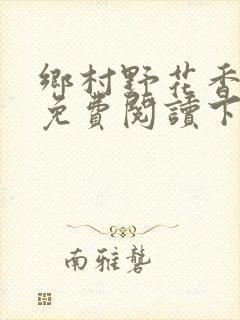 鄉村野花香
免費閱讀下
南雅礱